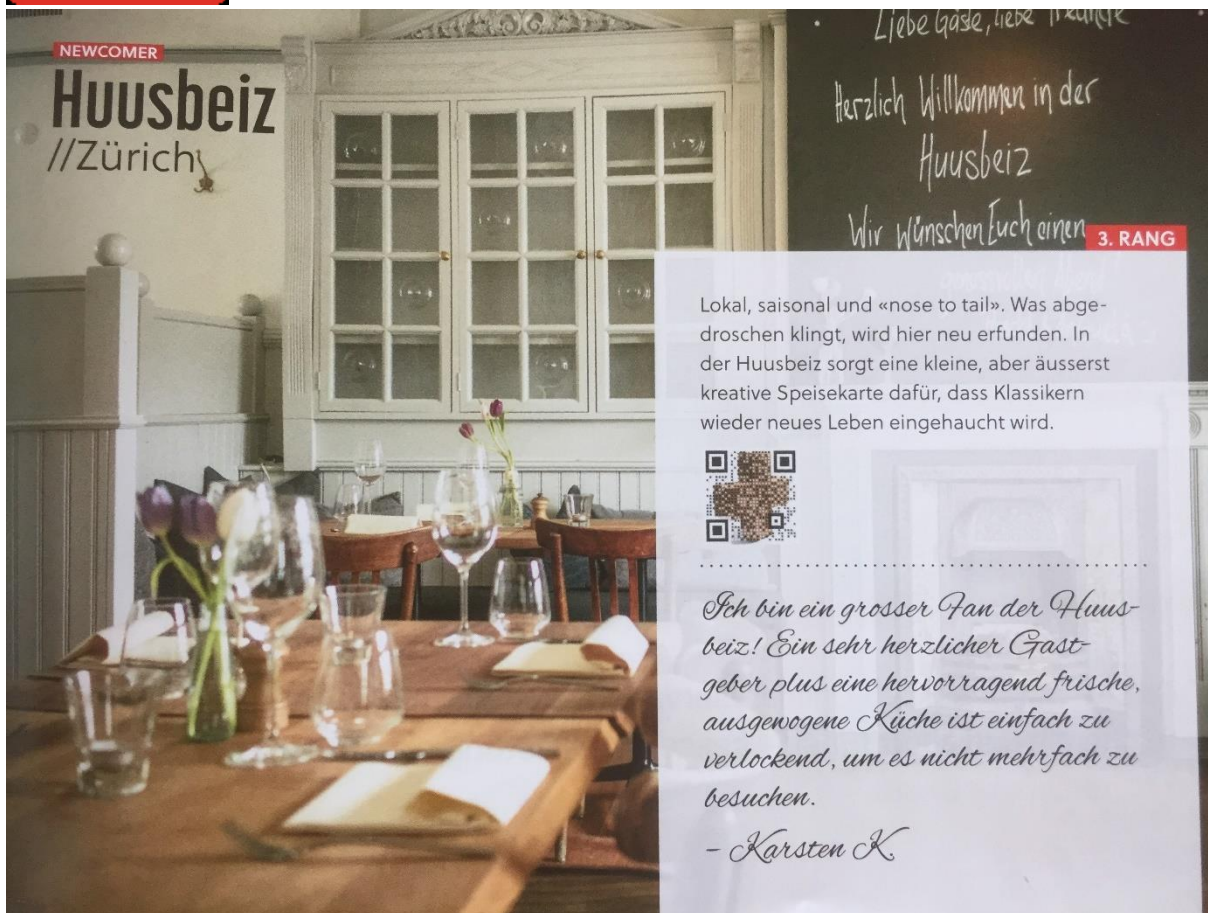 NEWCOMER
Huusbeiz
//Zürich
Liebe Gäste, liebe Freunde
Herzlich Willkommen in der
Huusbeiz
Wir wünschen Euch einen
3. RANG
Lokal, saisonal und «nose to tail». Was abge-
droschen klingt, wird hier neu erfunden. In
der Huusbeiz sorgt eine kleine, aber äusserst
kreative Speisekarte dafür, dass Klassikern
wieder neues Leben eingehaucht wird.
Ich bin ein grosser Fan der Huus-
beiz! Ein sehr herzlicher Gast-
geber plus eine hervorragend frische,
ausgewogene Küche ist einfach zu
verlockend, um es nicht mehrfach zu
besuchen.
– Karsten K.